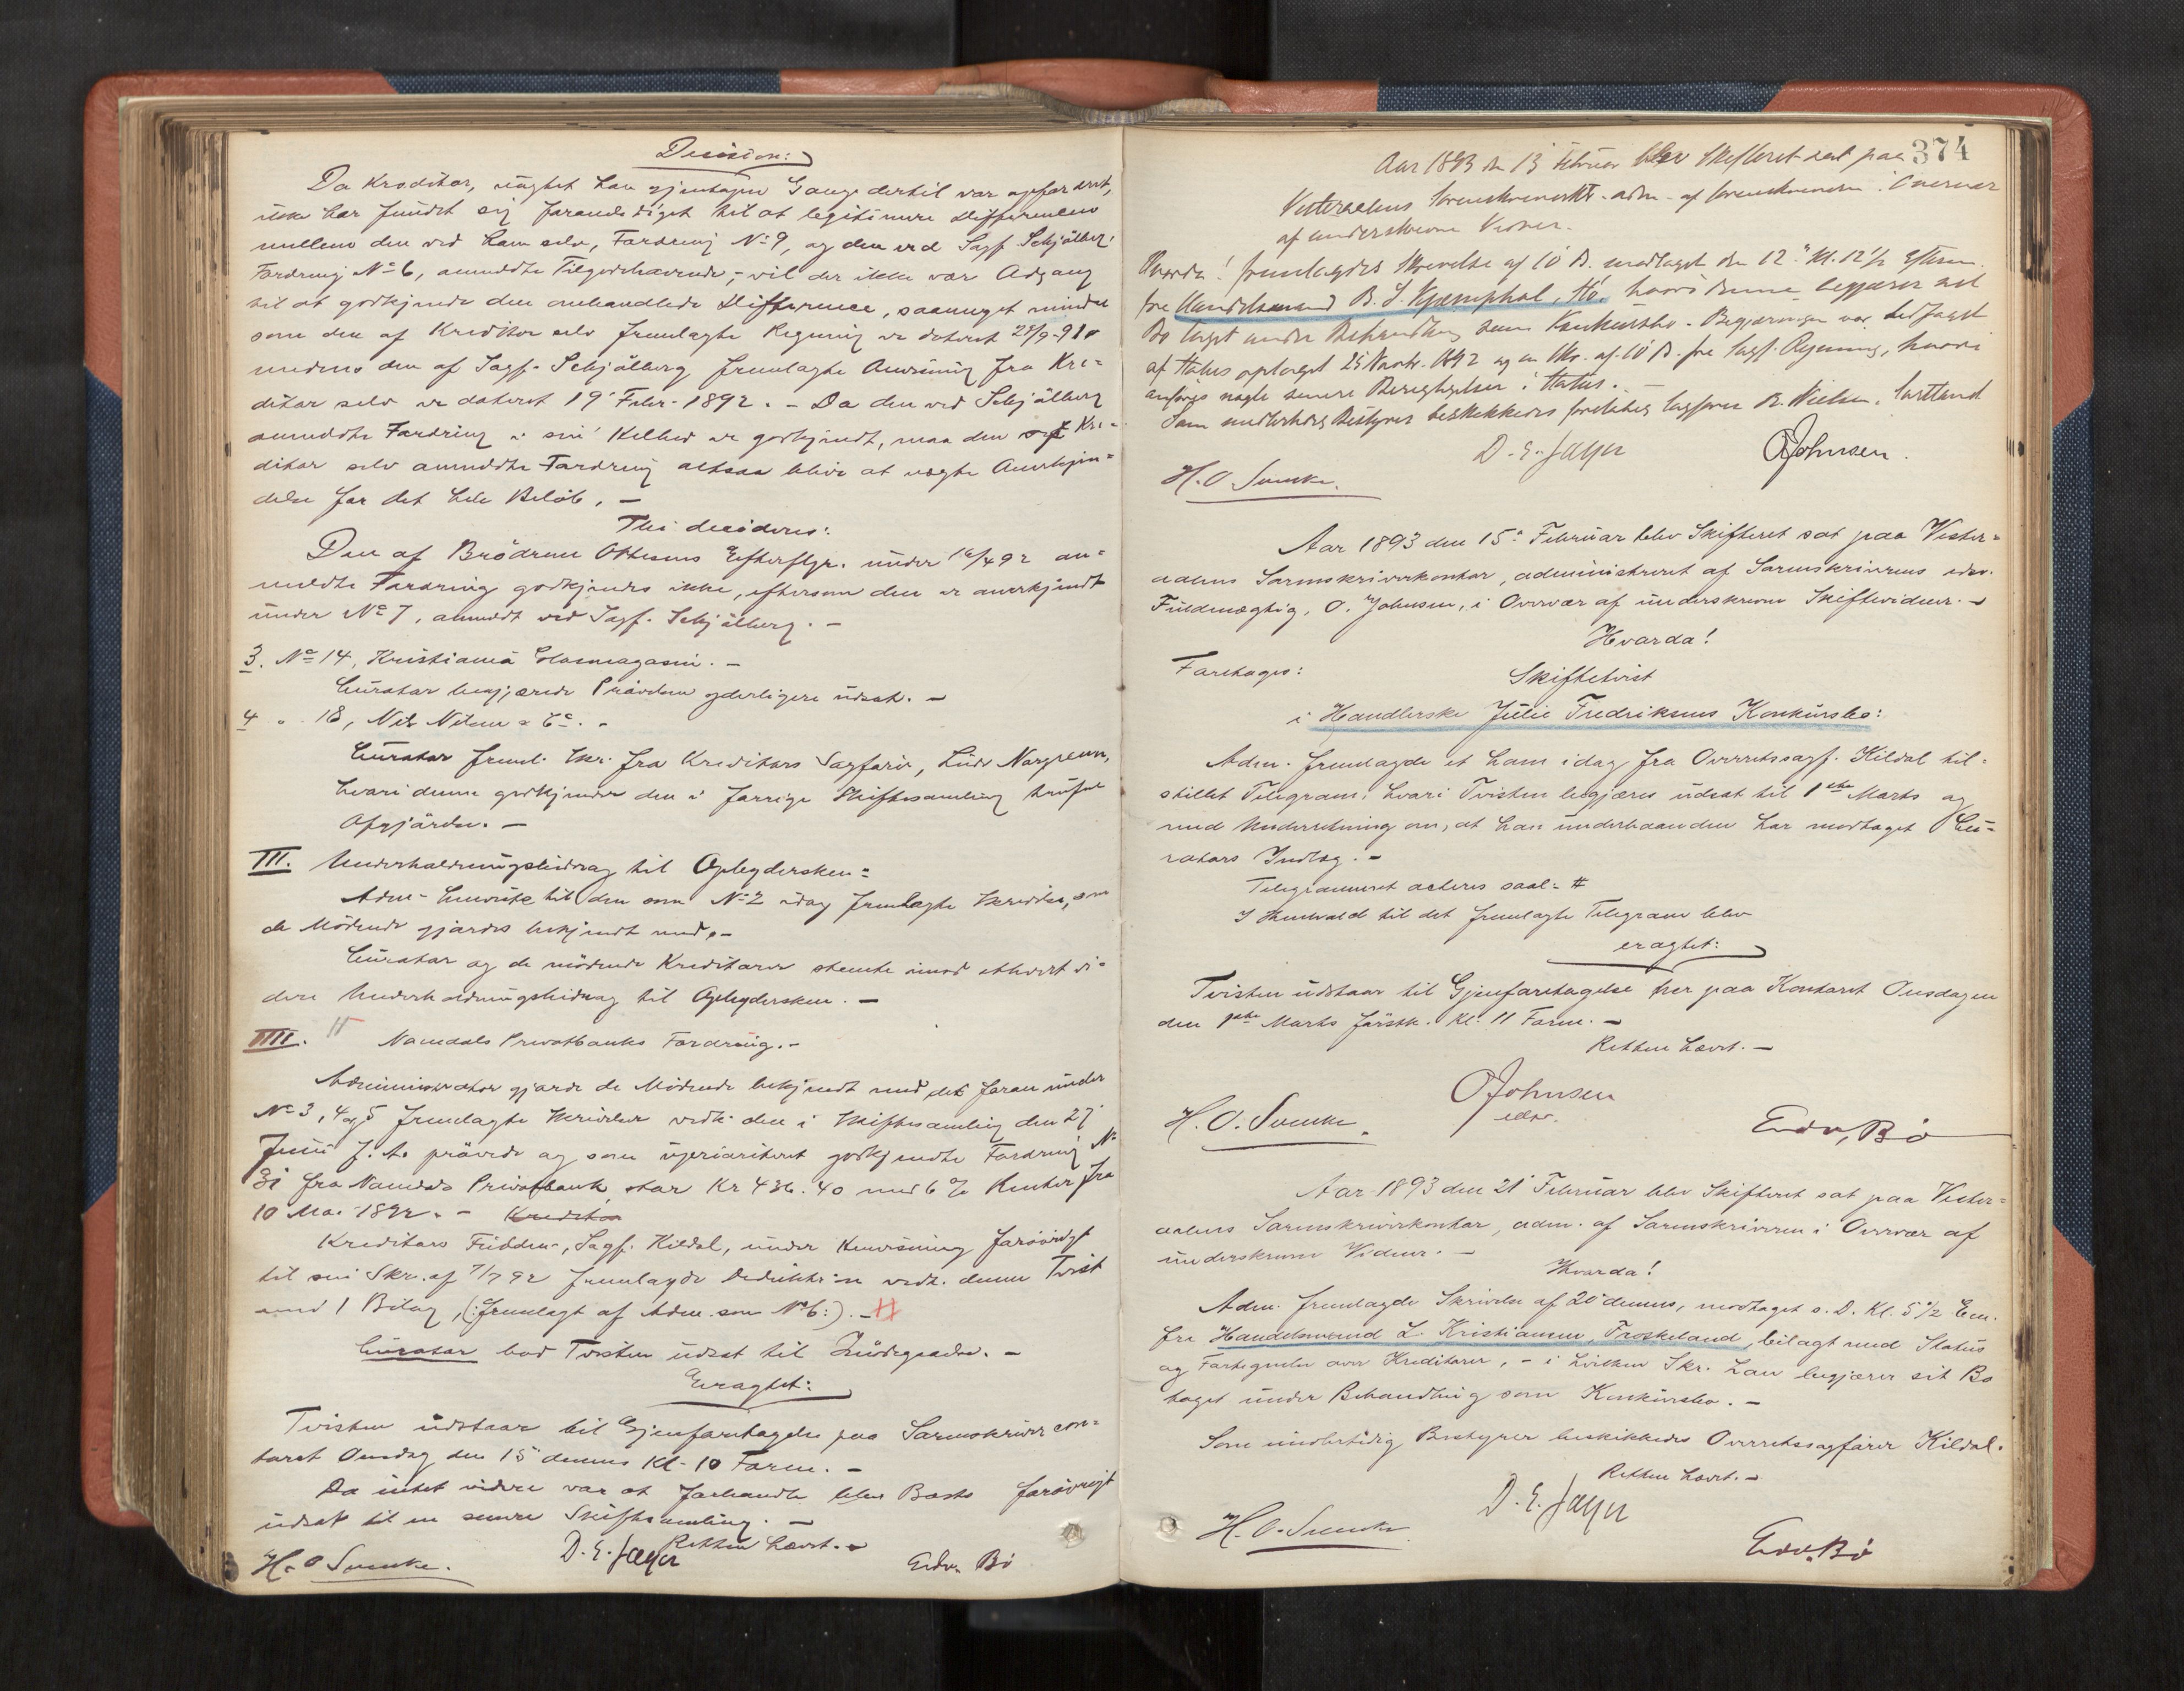 Decision:
Da Kreditor, uagtet han gjentagne Gange dertil var opfordret,
ikke har fundet sig foranlediget til at legitimere Differencen
mellem den ved ham selv, Fordring No 9, og den ved Sagf. Schjølberg,
Fordring No 6, anmeldte Tilgodehavende, - vil der ikke være Adgang
til at godkjende den omhandlede Difference, saameget mindre
som den af Kreditor selv fremlagte Regning er dateret 28/9-91
medens den af Sagf. Schjølberg fremlagte Anvisning fra Kre-
ditor selv er dateret 19' Febr. 1892. - Da den ved Schjølberg
anmeldte Fordring i sin Helhed er godkjendt, maa den af Kre-
ditor selv anmeldte Fordring altsaa blive at nægte Anerkjen-
delse for det hele Beløb. -
Thi decideres:
Den af Brødrene Ottesens Efterflgr. under 16/4 92 an-
meldte Fordring godkjendes ikke, eftersom den er anerkjendt
under No 7, anmeldt ved Sagf. Schjølberg. -
3. No 14, Kristiania Glasmagasin. -
Curator begjærede Prøvelsen yderligere udsat. -
4 " 18, Nils Nilsen & Co. -
Curator freml. Skr. fra Kreditors Sagfører,
hvori denne godkjender den i forrige Skiftesamling trufne
Afgjørelse. -
III. Underholdningsbidrag til Opbydersken:
Adm. henviste til den som No 2 idag fremlagte Skrivelse, som
de Mødende gjordes bekjendt med. -
Curator og de mødende Kreditorer stemte imod ethvert vi-
dere Underholdningsbidrag til Opbydersken. -
IIII. Namdals Privatbanks Fordring. -
Administrator gjorde de Mødende bekjendt med det foran under
No 3, 4 og 5 fremlagte Skrivelser vedk. den i Skiftesamling den 27'
Juni f. A. prøvede og som uprioriteret godkjendte Fordring No
31 fra Namdals Privatbank, stor Kr 436.40 med 6 % Renter fra
10 Mai 1892. - Kreditor
Kreditors Fuldm., Sagf. Kildal, under Henvisning forøvrigt
til sin Skr. af 7/7 92 fremlagde Deduktion vedk. denne Tvist
med 1 Bilag, (: fremlagt af Adm. som No 6 :). - #
Curator bad Tvisten udsat til
Eragtet:
Tvisten udstaar til Gjenforetagelse paa Sorenskrivercon-
toret Onsdag den 15' dennes Kl. 10 Form. -
Da intet videre var at forhandle blev Boet forøvrigt
udsat til en senere Skiftesamling. -
Retten hævet. -
H. O. Svenke. D. E. Jager Edv. Bö
374
Aar 1893 den 13' Februar blev Skifteret sat paa
Vesteraalens Sorenskriverktr. adm. af Sorenskriveren i Overvær
af underskrevne Vidner.
Hvorda! fremlagdes Skrivelse af 10 ds. modtaget den 12' Kl. 12 1/2 Efterm.
fra Handelsmand B. S. Kjæmphol, Stö, hvori denne begjærer sit
Bo taget under Behandling som Konkursbo. - Begjæringen var ledsaget
af Status optaget 25 Novbr. 1892 og en Skr. af 10 ds. fra Sagf. Rynning, hvori
anføres nogle senere Berigtigelser i Status. -
Som midlertidig Bestyrer beskikkedes foreløbig Sagfører R. Nielsen, Sortland
D. E. Jager OJohnsen.
H. O. Svenke.
Aar 1893 den 15' Februar blev Skifteret sat paa Vester-
aalens Sorenskriverkontor, administreret af Sorenskriverens edsv.
Fuldmægtig, O. Johnsen, i Overvær af underskrevne Skiftevidner. -
Hvorda!
Foretoges: Skiftetvist
i Handlerske Julie Fredriksens Konkursbo:
Adm. fremlagde et ham idag fra Overretssagf. Kildal til-
stillet Telegram, hvori Tvisten begjæres udsat til 1ste Marts og
med Underretning om, at han underhaanden har modtaget Cu-
rators Indlæg. -
Telegrammet acteres saal: #
I Henhold til det fremlagte Telegram blev
eragtet:
Tvisten udstaar til Gjenforetagelse her paa Kontoret Onsdagen
den 1ste Marts førstk. Kl. 11 Form. -
Retten hævet. -
OJohnsen
edsv.
H. O. Svenke. Edv. Bö
Aar 1893 den 21' Februar blev Skifteret sat paa Vester-
aalens Sorenskriverkontor, adm. af Sorenskriveren i Overvær af
underskrevne Vidner. -
Hvorda!
Adm. fremlagde Skrivelse af 20' dennes, modtaget s. D. Kl. 5 1/2 Em.
fra Handelsmand L. Kristiansen, Froskeland, bilagt med Status
og Fortegnelse over Kreditorer, - i hvilken Skr. han begjærer sit Bo
taget under Behandling som Konkursbo. -
Som midlertidig Bestyrer beskikkedes Overretssagfører Kildal.
Retten hævet. -
D. E. Jager
H. O. Svenke Edv. Bö